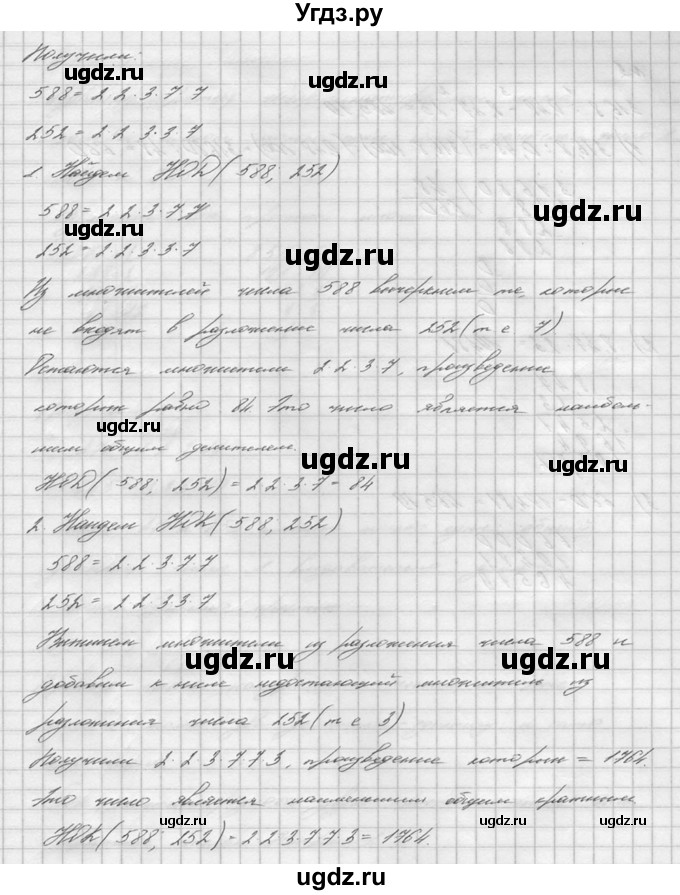 Угдз.ру
Получили:
ugdz.ru ugdz.ru
588 = 2 2 · 3 · 7 7
252 = 2 2 · 3 · 3 · 7
ugdz.ru
1. Найдем НОД( 588, 252)
588 = 2 2 · 3 · 7 7
ugdz.ru ugdz.ru
252 = 2 · 2 · 3 · 3 · 7
ugdz.ru
Из множителей числа 588 вычеркнем те, которые
не входят в разложение числа 252 (т е 7)
Остаются множители 2 2 · 3 7, произведение
которых равно 84. Это число является наиболь-
ugdz.ru
шим общим делителем.
ugdz.ru ugdz.ru
НОД( 588; 252) = 2 2 · 3 · 7 = 84
2. Найдем НОК( 588, 252)
588 = 2 · 2 · 3 · 7 7
252 = 2 2 · 3 3 · 7
Выпишем множители из разложения числа 588 и
ugdz.ru ugdz.ru
добавим к ним недостающий множитель из
разложения числа 252 (т е 3)
Получили 2 · 2 3 · 7 7 3, произведение которых = 1764.
Это число является наименьшим общим кратным
ugdz.ru ugdz.ru
НОК( 588; 252) = 2 2 3 · 7 7 3 = 1764.
ugdz.ru ugdz.ru
ugdz.ru